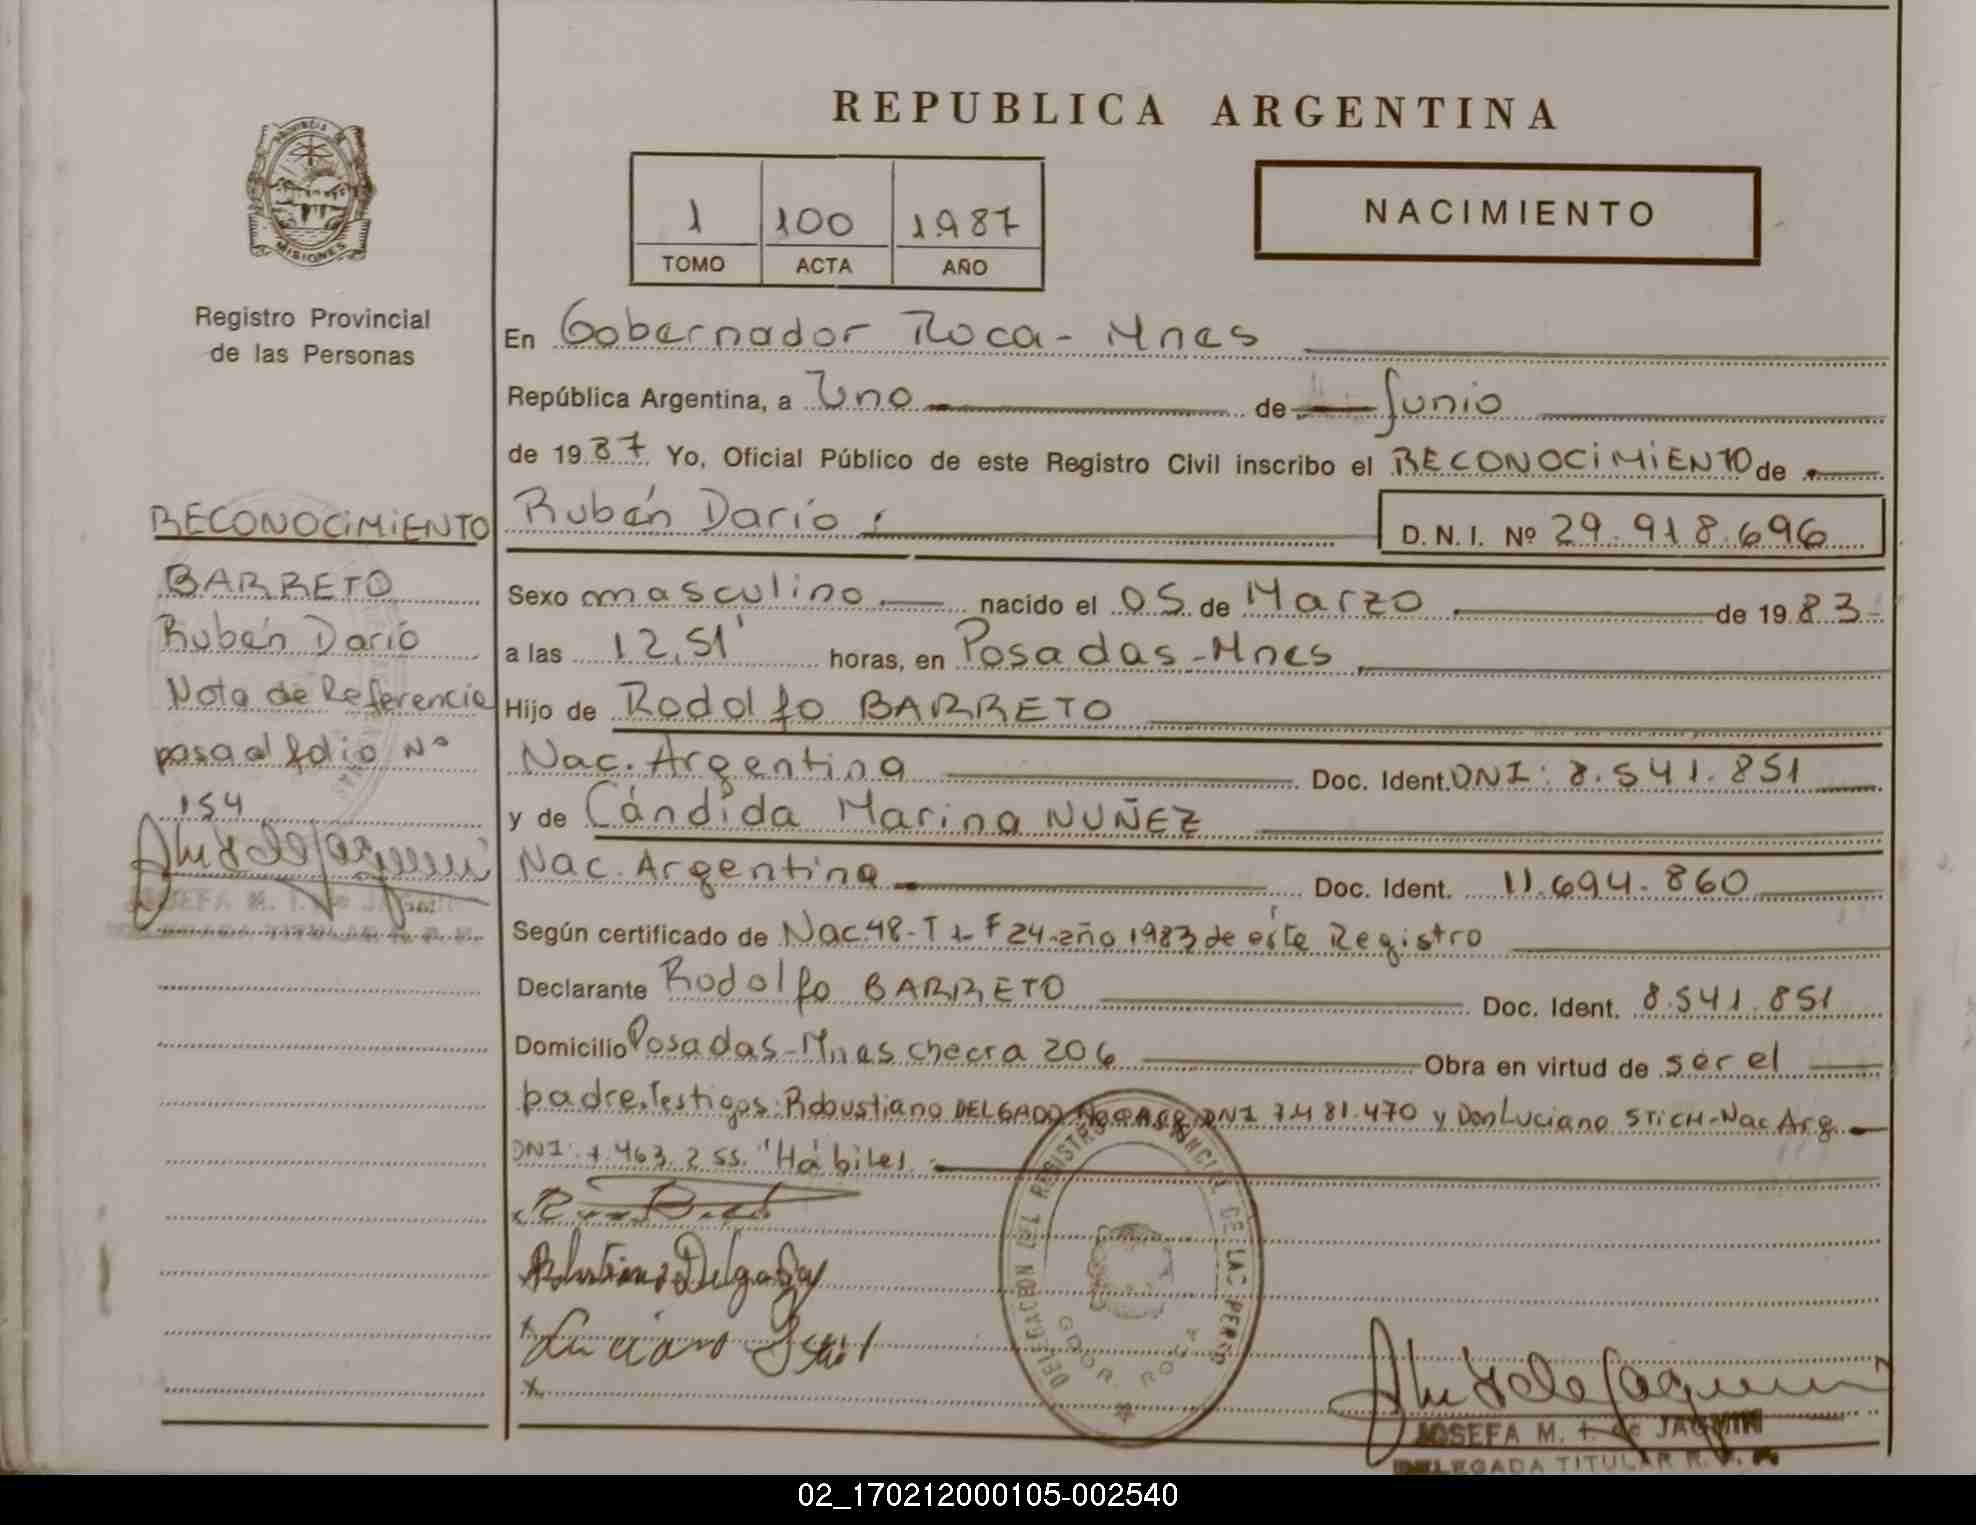 REPUBLICA ARGENTINA
PROVINCIA DE MISIONES
1 100 1987
TOMO ACTA AÑO
NACIMIENTO
Registro Provincial
de las Personas
En Gobernador Roca - Mnes
República Argentina, a Uno de Junio
de 1987 Yo, Oficial Público de este Registro Civil inscribo el RECONOCIMIENTO de
Rubén Darío
D.N.I. Nº 29.918.696
Sexo masculino nacido el 05 de Marzo de 1983
a las 12,51' horas, en Posadas - Mnes
Hijo de Rodolfo BARRETO
Nac. Argentina Doc. Ident. DNI: 8.541.851
y de Cándida Marina NUÑEZ
Nac. Argentina Doc. Ident. 11.694.860
Según certificado de Nac. 48 - T 1 - F 24 - año 1983 de éste Registro
Declarante Rodolfo BARRETO Doc. Ident. 8.541.851
Domicilio Posadas - Mnes checra 206 Obra en virtud de ser el
padre. Testigos: Robustiano DELGADO DNI 7.481.470 y Don Luciano STICH - Nac Arg.
DNI: 7.463.255. "Hábiles
RECONOCIMIENTO
BARRETO
Rubén Darío
Nota de Referencia
pasa al folio Nº
154
JOSEFA M. T. de JAGMIN
DELEGADA TITULAR R. P. P.
Robustiano Delgado
Luciano
DELEGACION DEL REGISTRO PROVINCIAL DE LAS PERS
GDOR. ROCA
JOSEFA M. T. de JAGMIN
DELEGADA TITULAR R. P. P.
02_170212000105-002540